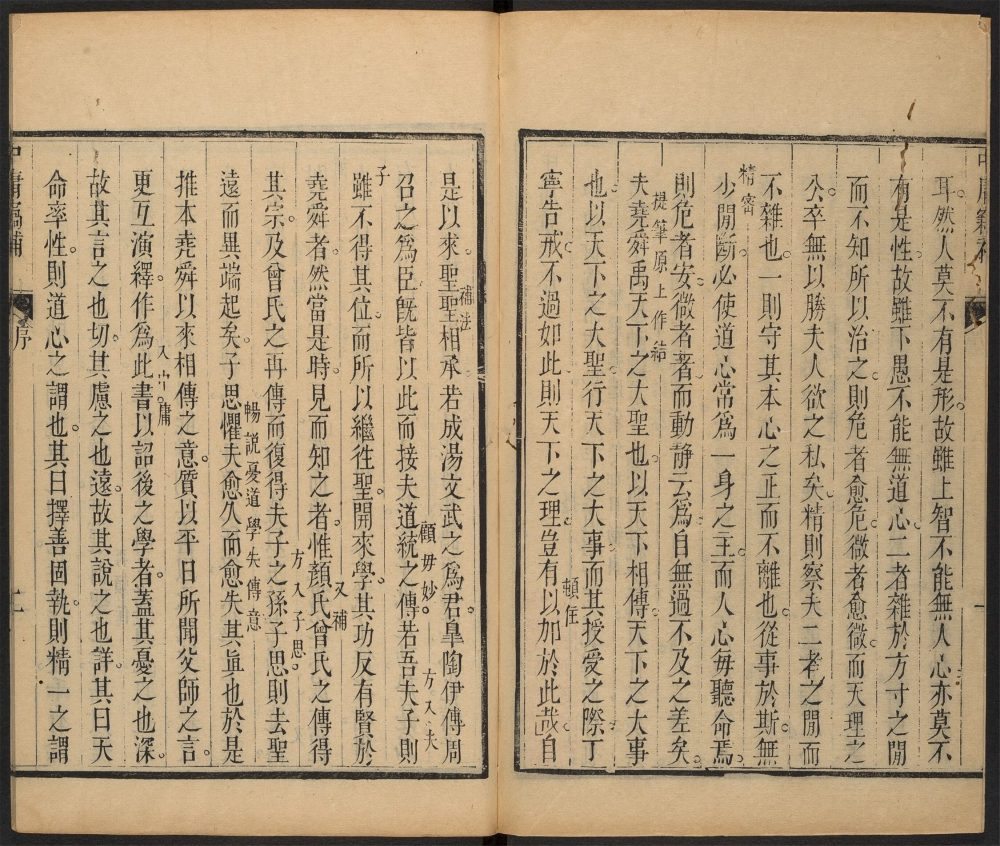 耳然人莫不有是形故雖上智不能無人心亦莫不
有是性故雖下愚不能無道心二者雜於方寸之閒
而不知所以治之則危者愈危微者愈微而天理之
公卒無以勝夫人欲之私矣精則察夫二者之閒而
不雜也一則守其本心之正而不離也從事於斯無
精密
少閒斷必使道心常爲一身之主而人心每聽命焉
則危者安微者著而動静云爲自無過不及之差矣
提筆原上作結
夫堯舜禹天下之大聖也以天下相傳天下之大事
也以天下之大聖行天下之大事而其授受之際丁
頓住
寧告戒不過如此則天下之理豈有以加於此哉自
補法
是以來聖聖相承若成湯文武之爲君皐陶伊傅周
顧毋妙 方入夫
子
召之爲臣旣皆以此而接夫道統之傳若吾夫子則
雖不得其位而所以繼徃聖開來學其功反有賢於
又補
堯舜者然當是時見而知之者惟顏氏曾氏之傳得
方入子思
其宗及曾氏之再傳而復得夫子之孫子思則去聖
暢說憂道學失傳意
遠而異端起矣子思懼夫愈久而愈失其眞也於是
推本堯舜以來相傳之意質以平日所聞父師之言
入中庸
更互演繹作爲此書以詔後之學者葢其憂之也深
故其言之也切其慮之也遠故其說之也詳其曰天
命率性則道心之謂也其曰擇善固執則精一之謂
中庸
序
二